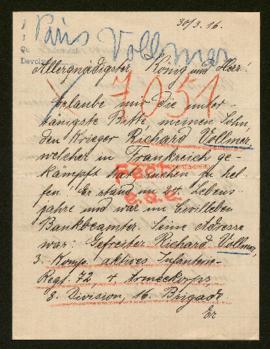 30/3.16.
Päris Vollmer
Devoir
Allergnädigster König und Herr!
7051
Erlaube mir die unter-
tänigste Bitte, meinen Sohn,
den Krieger Richard Vollmer,
welcher in Frankreich ge-
kämpft hat suchen zu hel-
fen. Er stand im 24. Lebens-
jahre und war im Civilleben
Bankbeamter. Seine Adresse
war: Gefreiter Richard Vollmer,
3. Komp. aktives Infanterie-
Regt. 72, 4 Armeekorps
8. Division, 16. Brigade
Er